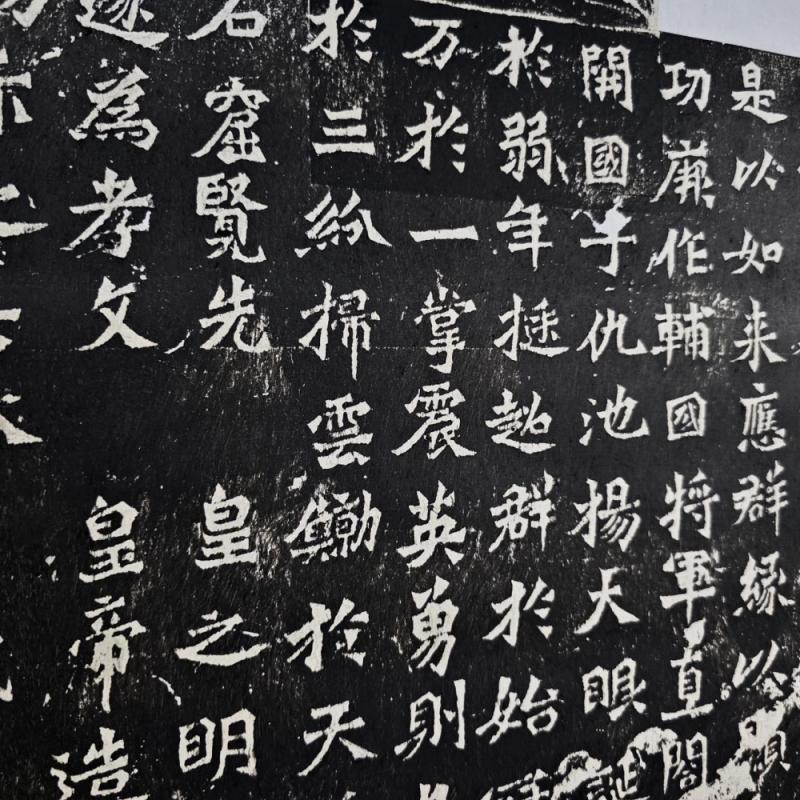 是以如来應群縁以顕
功廉作輔國將軍直閤
開國子仇池楊天眼
於弱年挺超群於始
万於一掌震英勇則
於三紛掃雲鯨於天
石窟覽先皇之明
遂為孝文皇帝造